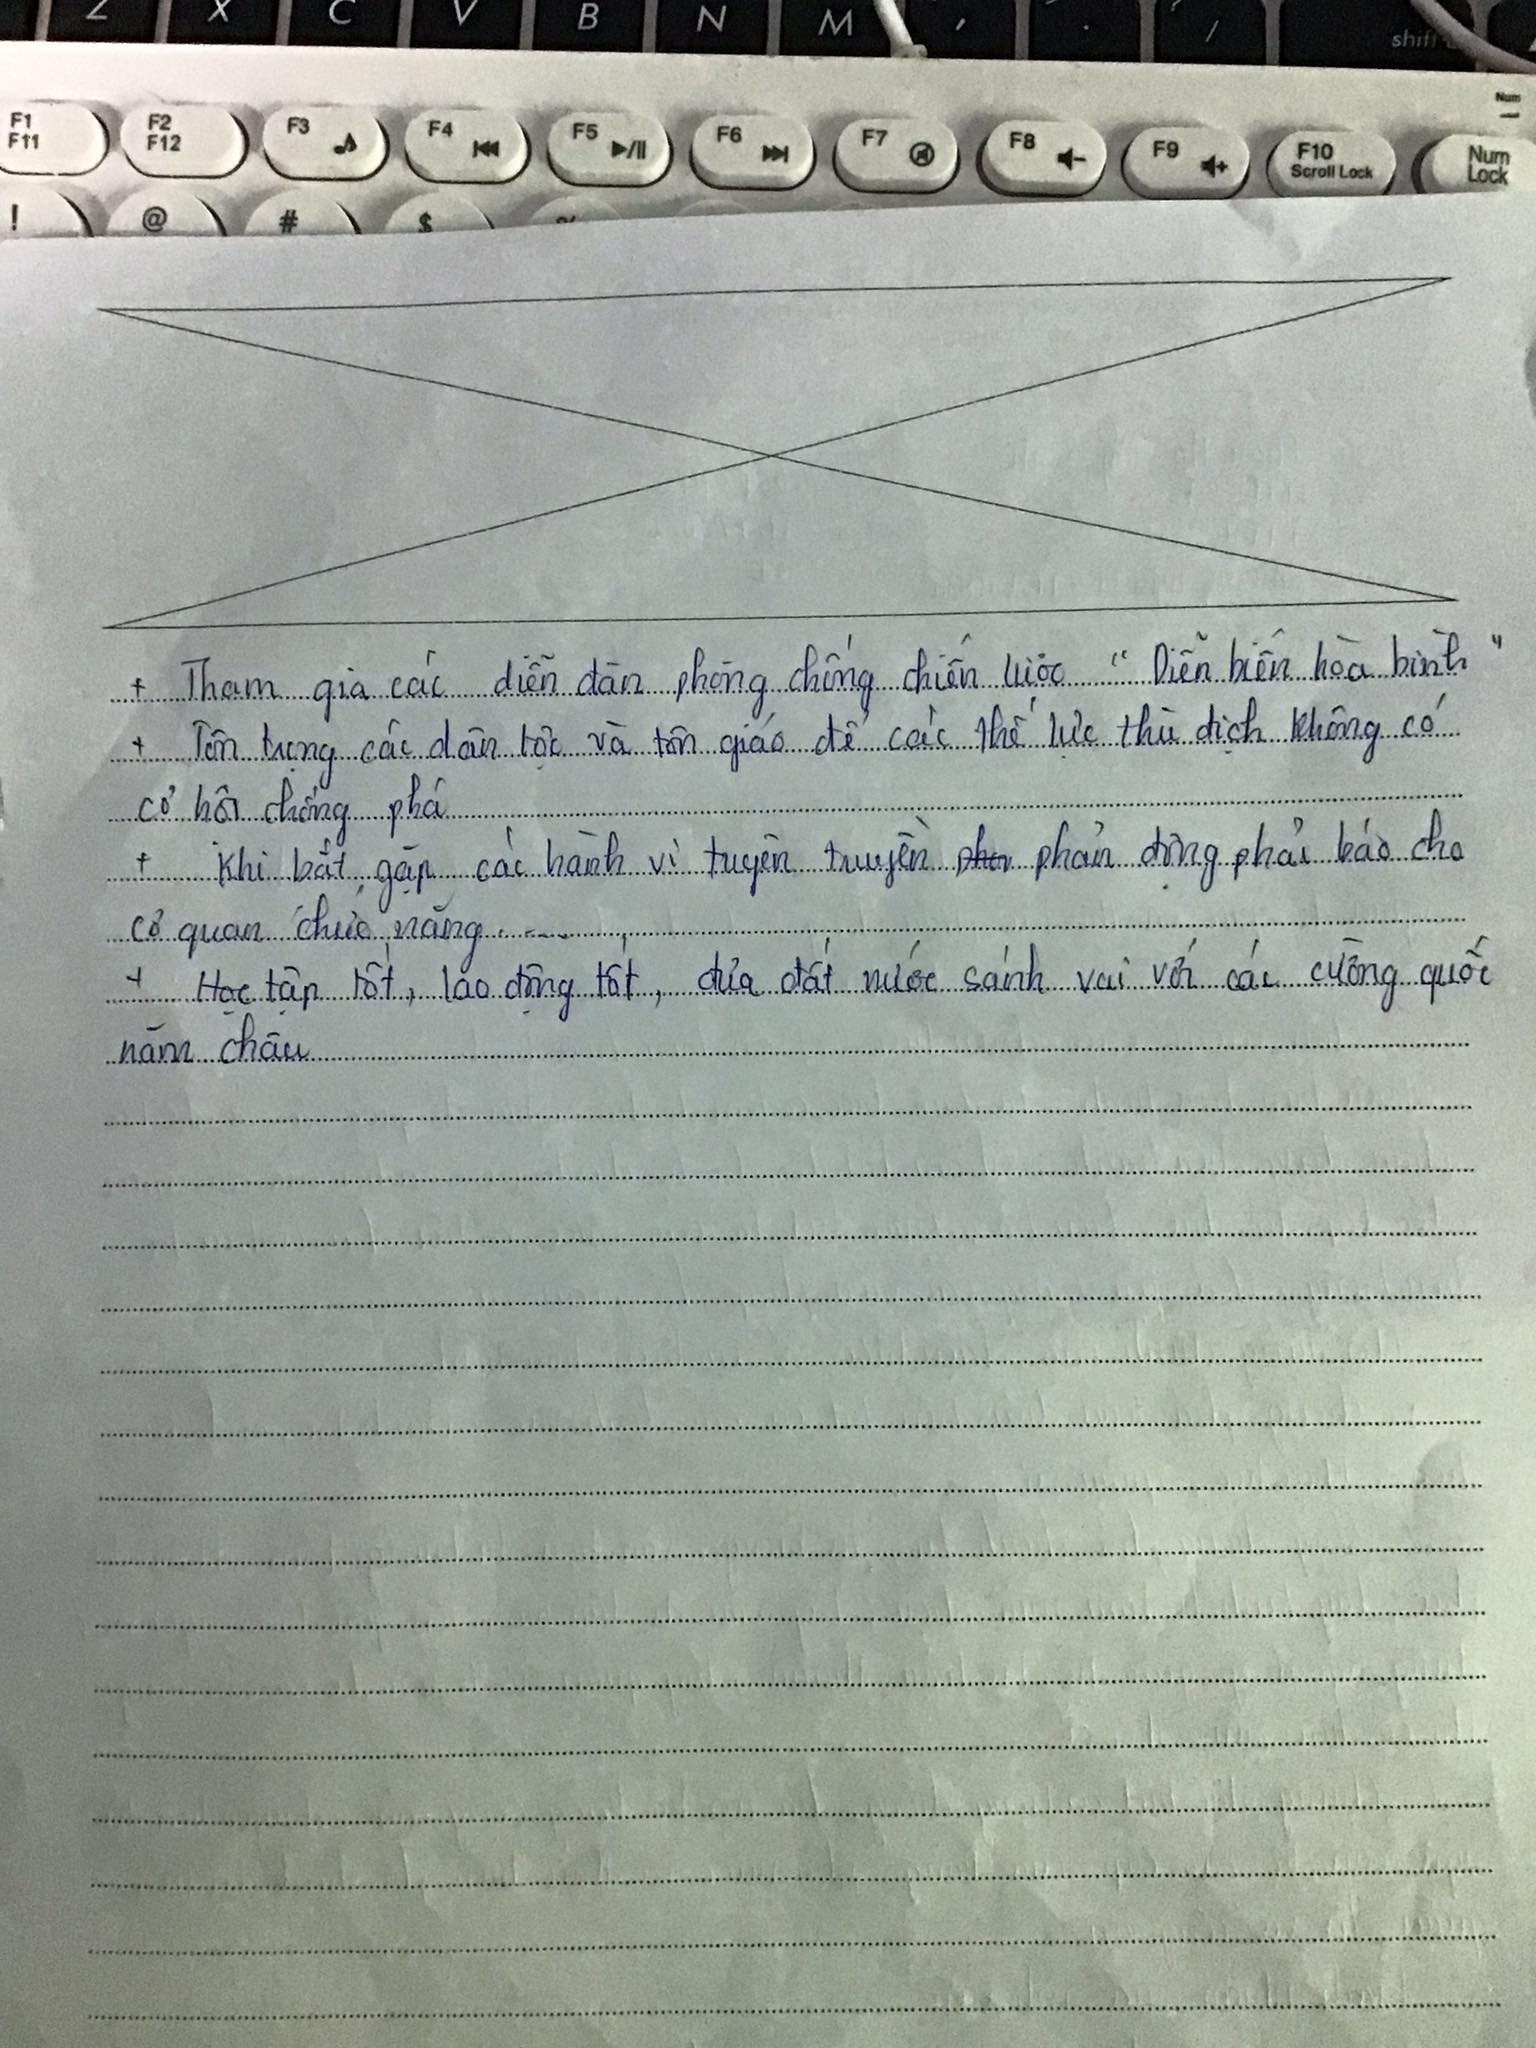 Z X C V B N M , . / shift
Num
F1 F2 F3 F4 F5 F6 F7 F8 F9 F10 Num
F11 F12 Scroll Lock Lock
! @ # $ %
+ Tham gia các diễn đàn phòng chống chiến lược " Diễn biến hòa bình "
+ Tôn trọng các dân tộc và tôn giáo để các thế lực thù địch không có
cơ hội chống phá
+ Khi bắt gặp các hành vi tuyên truyền phản động phải báo cho
cơ quan chức năng.
+ Học tập tốt, lao động tốt, đưa đất nước sánh vai với các cường quốc
năm châu